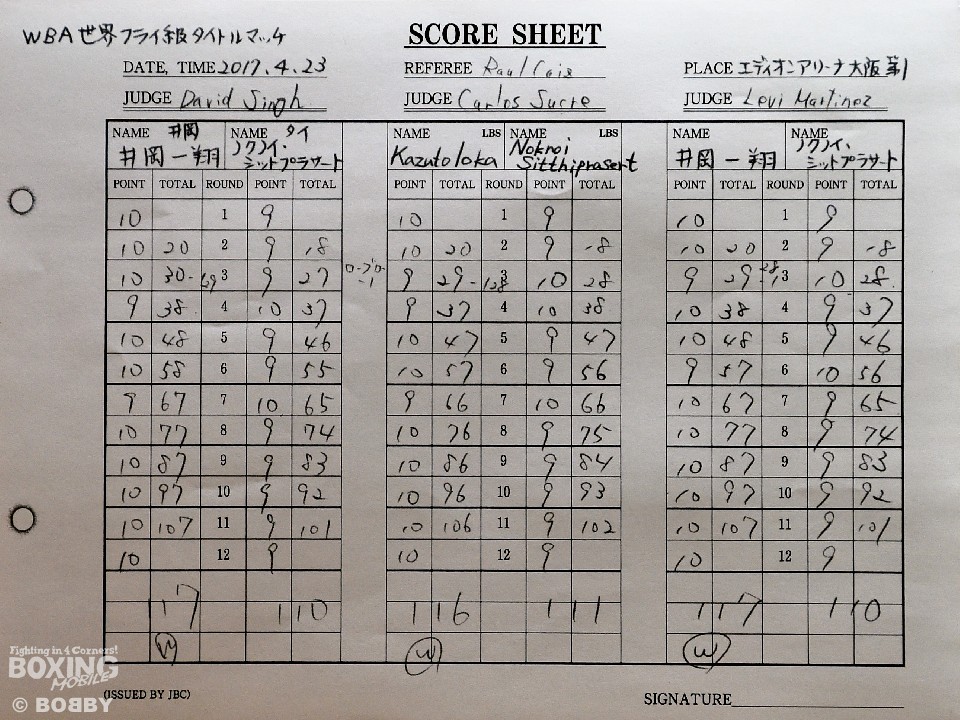 WBA世界フライ級タイトルマッチ
SCORE SHEET
DATE, TIME 2017.4.23 REFEREE Raul Caiz PLACE エディオンアリーナ大阪第1
JUDGE David Singh JUDGE Carlos Sucre JUDGE Levi Martinez
NAME 井岡 NAME タイ NAME LBS NAME LBS NAME NAME
井岡一翔 ノクノイ・シットプラサート Kazuto Ioka Noknoi Sitthiprasert 井岡一翔 ノクノイ・シットプラサート
POINT TOTAL ROUND POINT TOTAL POINT TOTAL ROUND POINT TOTAL POINT TOTAL ROUND POINT TOTAL
10 1 9 10 1 9 10 1 9
10 20 2 9 18 10 20 2 9 18 10 20 2 9 18
10 30-1 29 3 9 27 ローブロー -1 9 29-1 28 3 10 28 9 29 28 -1 3 10 28
9 38 4 10 37 9 37 4 10 38 10 38 4 9 37
10 48 5 9 46 10 47 5 9 47 10 48 5 9 46
10 58 6 9 55 10 57 6 9 56 9 57 6 10 56
9 67 7 10 65 9 66 7 10 66 10 67 7 9 65
10 77 8 9 74 10 76 8 9 75 10 77 8 9 74
10 87 9 9 83 10 86 9 9 84 10 87 9 9 83
10 97 10 9 92 10 96 10 9 93 10 97 10 9 92
10 107 11 9 101 10 106 11 9 102 10 107 11 9 101
10 12 9 10 12 9 10 12 9
117 110 116 111 117 110
W W W
Fighting in 4 Corners!
BOXING
MOBILE
© BOBBY
(ISSUED BY JBC)
SIGNATURE